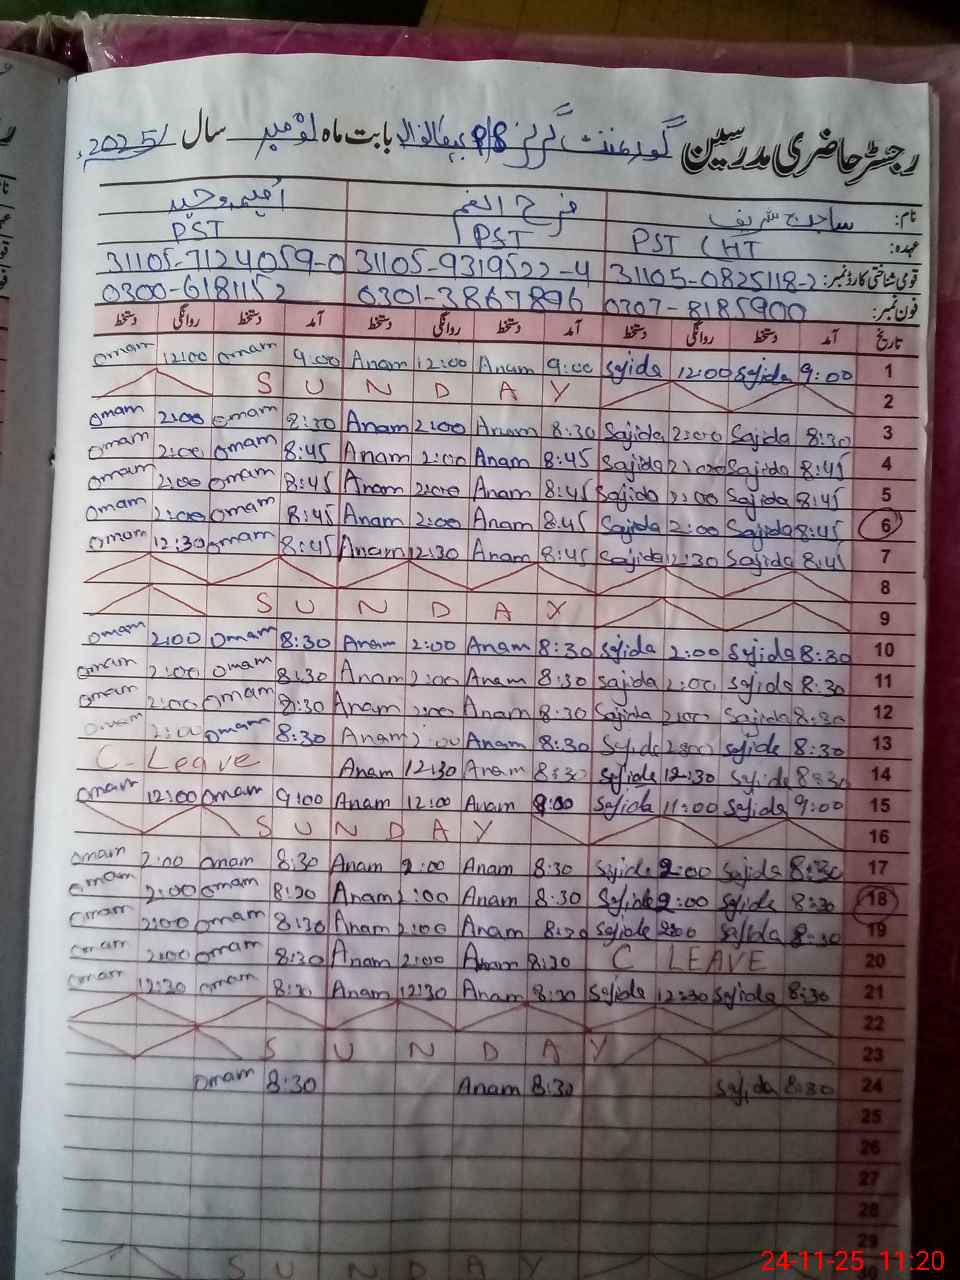 رجسٹر حاضری مدرسین گورنمنٹ گرلز P/S بابت ماہ نومبر سال 2025ء
نام: ساجدہ شریف فرح انعم
عہدہ: PST (HT PST PST
قومی شناختی کارڈ نمبر: 31105-0825118-2 31105-9319522-4 31105-7124059-0
فون نمبر: 0307-8185900 0301-3867896 0300-6181152
تاریخ آمد دستخط روانگی دستخط آمد دستخط روانگی دستخط آمد دستخط روانگی دستخط
omam 12:00 omam 9:00 Anam 12:00 Anam 9:00 Sajida 12:00 Sajida 9:00 1
S U N D A Y 2
omam 2:00 omam 8:30 Anam 2:00 Anam 8:30 Sajida 2:00 Sajida 8:30 3
omam 2:00 omam 8:45 Anam 2:00 Anam 8:45 Sajida 2:00 Sajida 8:45 4
omam 2:00 omam 8:45 Anam 2:00 Anam 8:45 Sajida 2:00 Sajida 8:45 5
omam 2:00 omam 8:45 Anam 2:00 Anam 8:45 Sajida 2:00 Sajida 8:45 6
omam 12:30 omam 8:45 Anam 12:30 Anam 8:45 Sajida 12:30 Sajida 8:45 7
8
S U N D A Y 9
omam 2:00 omam 8:30 Anam 2:00 Anam 8:30 Sajida 2:00 Sajida 8:30 10
omam 2:00 omam 8:30 Anam 2:00 Anam 8:30 Sajida 2:00 Sajida 8:30 11
omam 2:00 omam 8:30 Anam 2:00 Anam 8:30 Sajida 2:00 Sajida 8:30 12
omam 2:00 omam 8:30 Anam 2:00 Anam 8:30 Sajida 2:00 Sajida 8:30 13
C-Leave Anam 12:30 Anam 8:30 Sajida 12:30 Sajida 8:30 14
omam 12:00 omam 9:00 Anam 12:00 Anam 9:00 Sajida 11:00 Sajida 9:00 15
S U N D A Y 16
omam 2:00 omam 8:30 Anam 2:00 Anam 8:30 Sajida 2:00 Sajida 8:30 17
omam 2:00 omam 8:30 Anam 2:00 Anam 8:30 Sajida 2:00 Sajida 8:30 18
omam 2:00 omam 8:30 Anam 2:00 Anam 8:30 Sajida 2:00 Sajida 8:30 19
omam 2:00 omam 8:30 Anam 2:00 Anam 8:30 C LEAVE 20
omam 12:30 omam 8:30 Anam 12:30 Anam 8:30 Sajida 12:30 Sajida 8:30 21
22
S U N D A Y 23
omam 8:30 Anam 8:30 Sajida 8:30 24
25
26
27
28
29
S U N D A Y
24-11-25 11:20